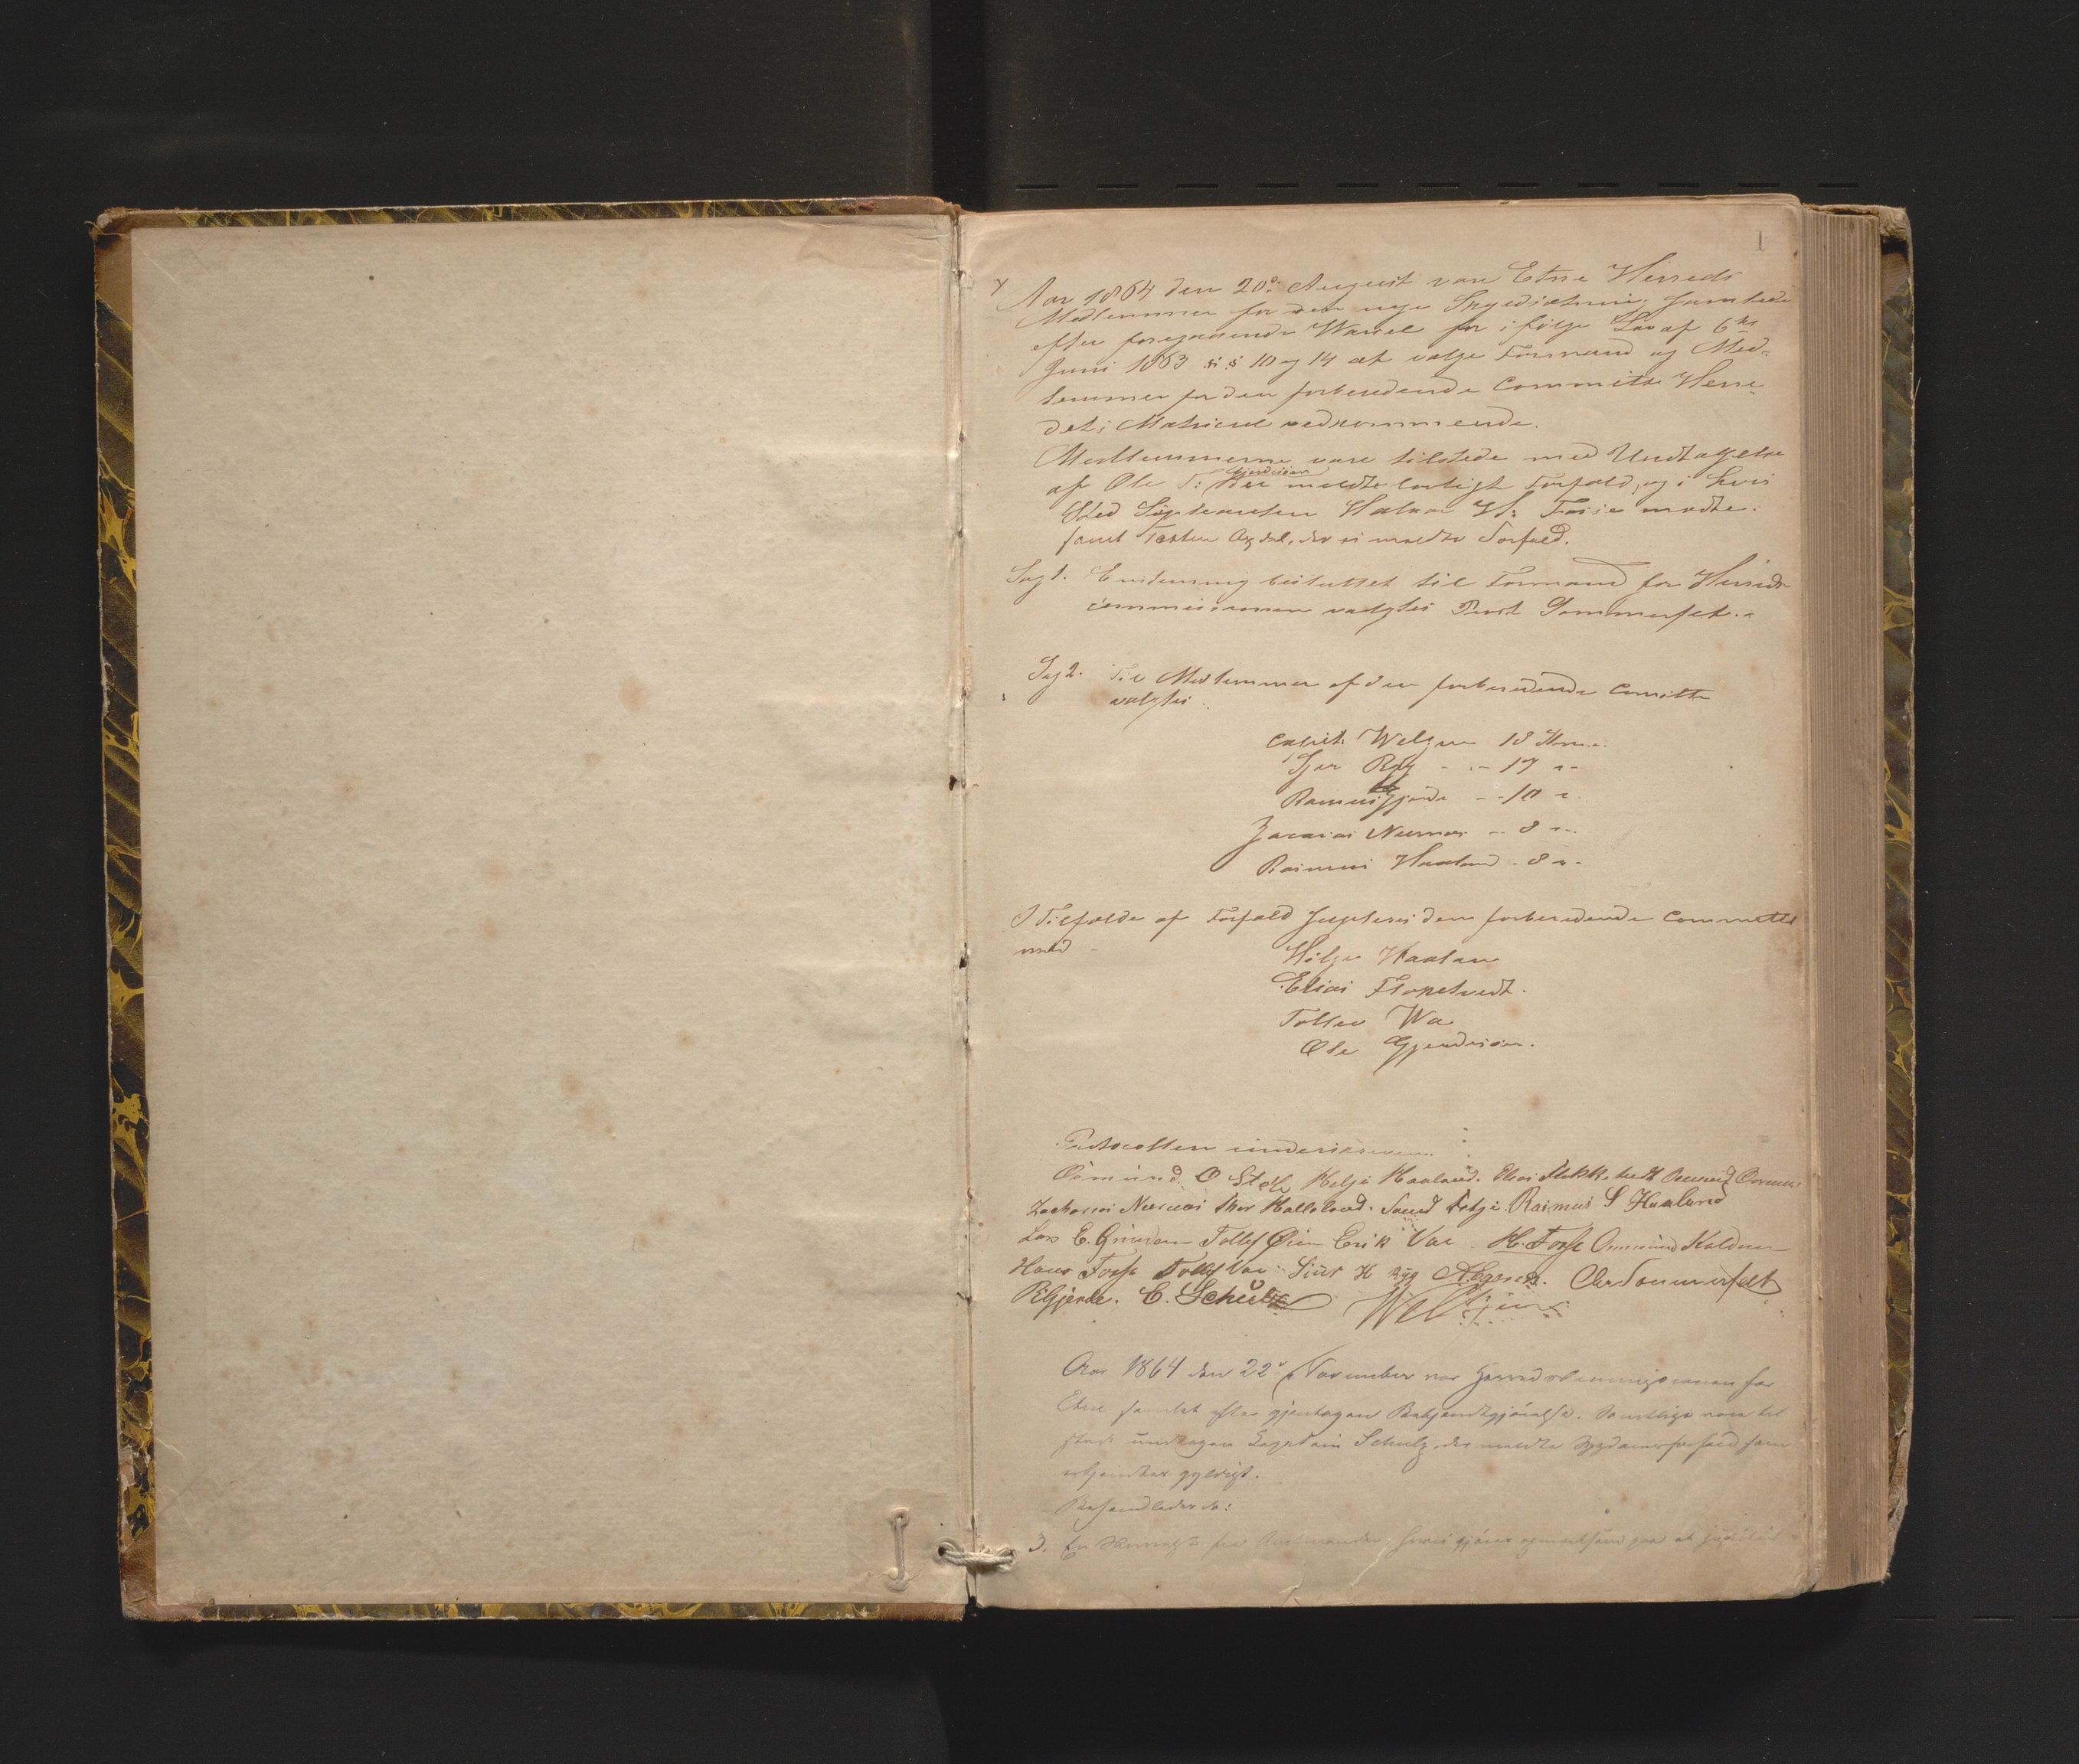 1
Aar 1864 den 20de August vare Etne Herreds
Medlemmer for den nye Skyldsætning samlede
efter foregaaende Varsel for ifølge Lov af 6te
Juni 1863 §§ 10 og 14 at vælge Formand og Med-
lemmer for den forberedende Committe Herre-
det; Matricul vedkommende.
Medlemmerne vare tilstede med Undtagelse
Gjerdesøen
af Ole T: der meldte lovligt Forfald, og i hvis
Sted Supleanten Halvor H: Fosse mødte.
samt Torsten Axdal, der ei meldte Forfald.
Sag 1. Enstemmig besluttet til Formand for Herreds
commissionen valgtes Provst Sommerfelt.
Sag 2. Til Medlemmer af den forberedende Comitte
valgtes
Capit. Welgjen 18 Stem.
Sjur Ryg - - 17 "
Rasmus Gjerde - - 10 "
Zacarias Næsnes - 8 "
Rasmus Haaland - 8 "
I Tilfælde af Forfald supleres den forberedende Committe
med
Helge Haaland
Elias Flokstvedt.
Tollev Va
Ole Gjerdesøen.
Protocollen underskreven
Osmund O Støle Helje Haaland. Elias
Zacharias Næsnes Thor Halleland. Rasmus S Haaland
Lars E. Grindem Tollef Øien Erik Vae H. Fosse
Hans Fosse Tollef Vae Siur H Ryg Chr Sommerfelt
R Gjerde. C. Schultz Welgjen
Aar 1864 den 22de November var Herredskommissionen for
Etne samlet efter gjentagen Bekjendtgjørelse. Samtlige vare til
stede undtagen Capitain Schulz der meldte Sygdomsforfald som
erkjendtes gyldigt.
Behandledes da:
3. En Skrivelse fra